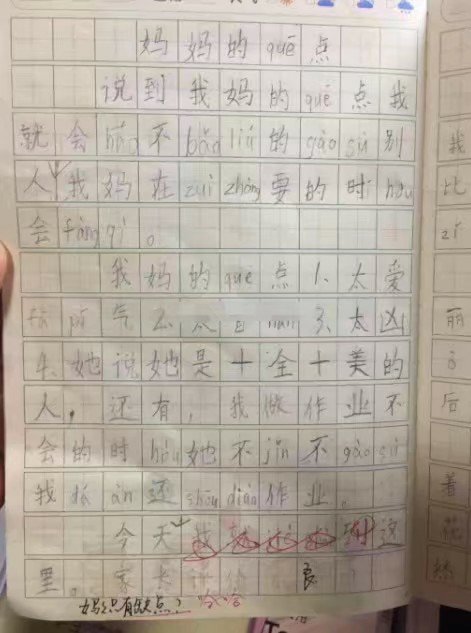 妈妈的quē点
说到我妈的quē点我
就会háo不bǎo liú的gào sù别
人我妈在zuì zhòng要的时hòu
会fàng qì。
我妈的quē点1、太爱
气2、 3、太凶
4、她说她是十全十美的
人，还有，我做作业不
会的时hòu她不jǐn不gào sù
我 àn还 作业。
今天 这
里。家长
妈只有缺点？
我
比
zǐ
丽
后
着
花